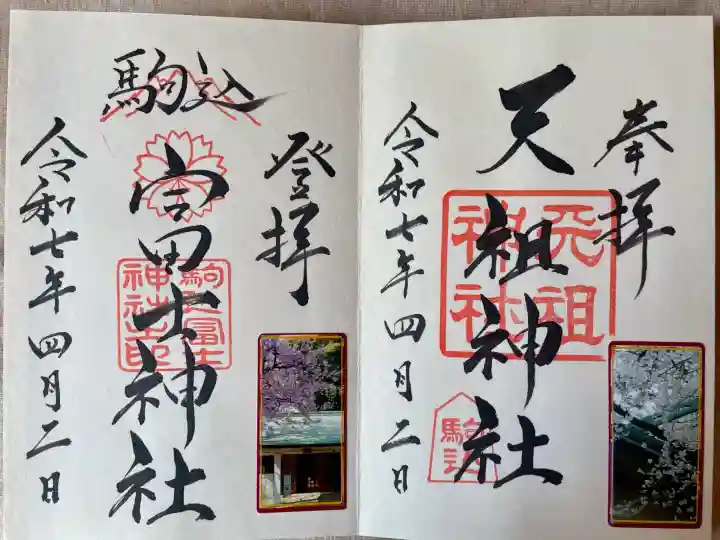 奉拝
天祖神社
天祖神社
駒込
令和七年四月二日
登拝
駒込
富士神社
駒込富士神社之印
令和七年四月二日